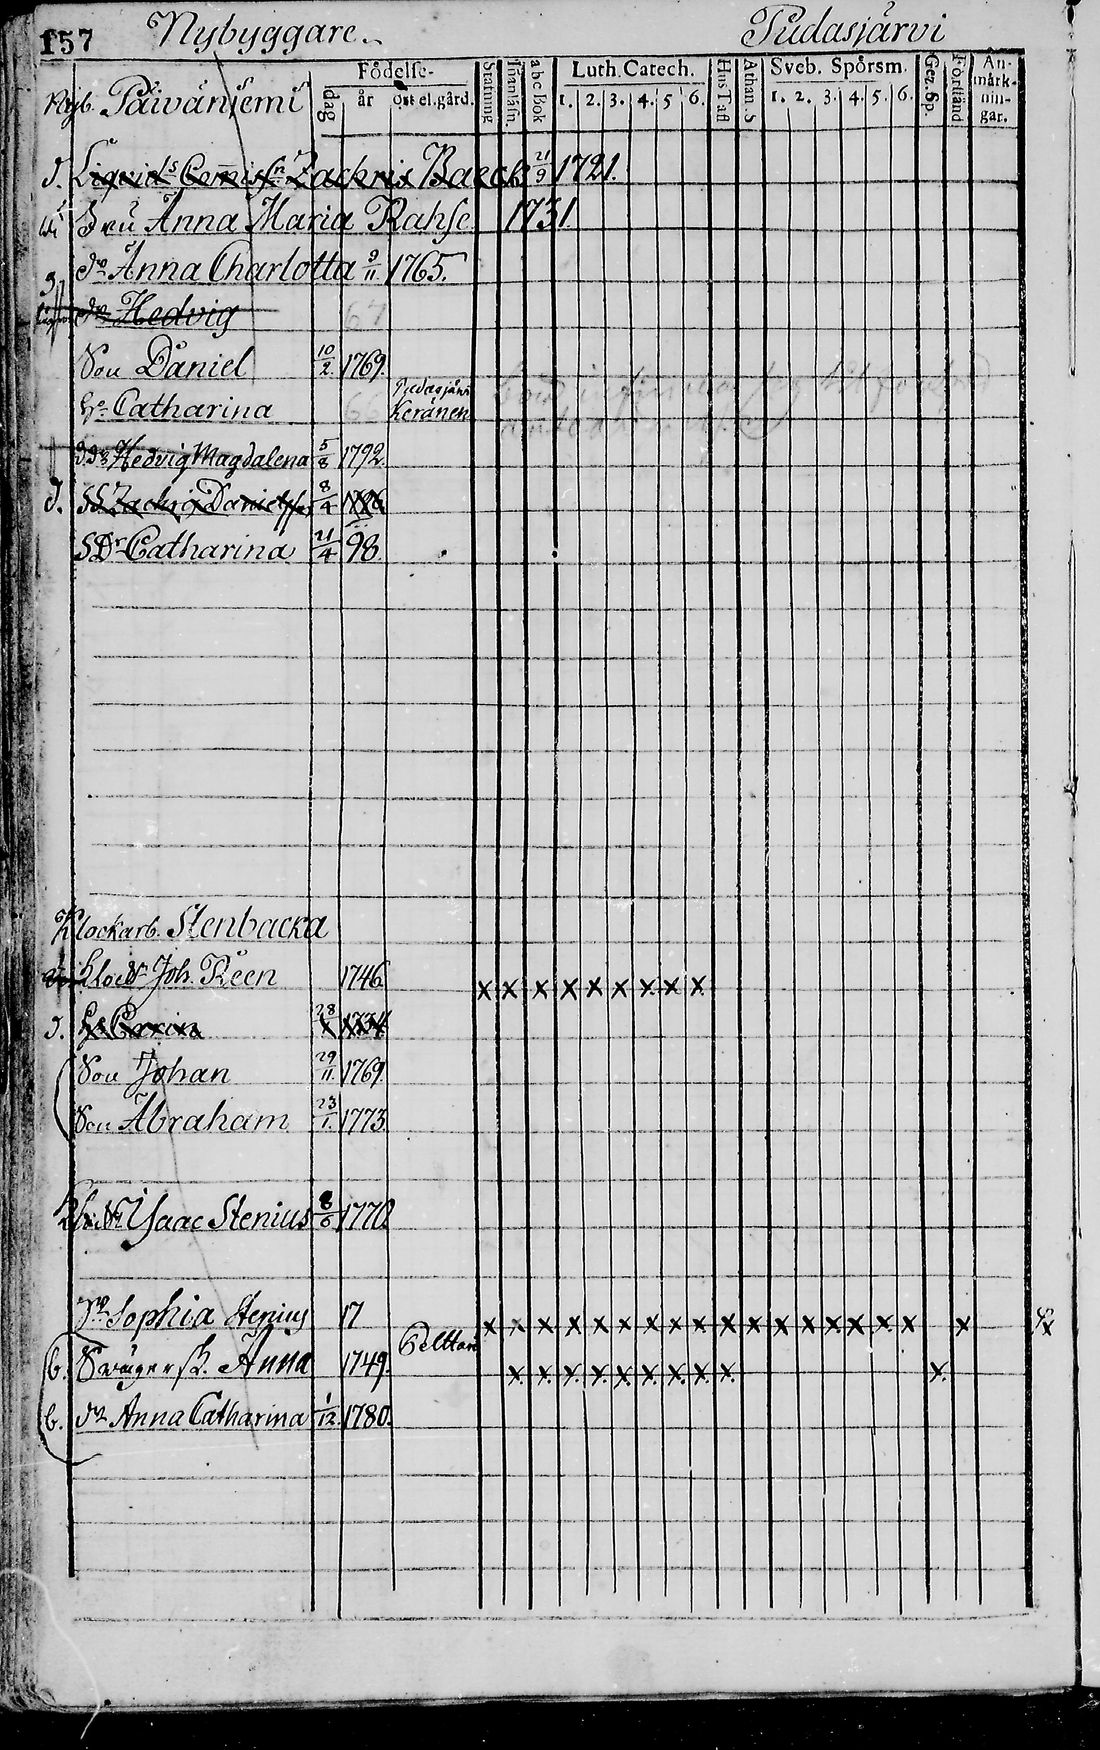 157 Nybyggare. Pudasjärvi
Födelse-
dag år Ort el. gård. Stafning Innanläsn. abc Bok Luth. Catech. 1. 2. 3. 4. 5 6. Hus Tafl Athan. S Sveb. Spörsm. 1. 2. 3. 4. 5. 6. Gez. Sp. Förstånd An-märk-nin-gar.
Nyb. Päivärjemi
d. Liqvid.s Comissn Zachris Baeck 21/9 1721.
Fru Anna Maria Rahse 1731.
dr. Anna Charlotta 9/11 1765.
dr. Hedvig 67
Son Daniel 10/2. 1769.
Hu. Catharina 66 Pudasjärvi Keränen
D.dr. Hedvig Magdalena 5/8 1792.
d. SS. Zachris Danielss. 8/4
S Dr Catharina 21/4 98.
Klockarb. Stenbacka
Joh. Reen 1746 x x x x x x x x x
d. Hu. Carin 28
Son Johan 29/11. 1769.
Son Abraham 23/1. 1773.
Isaac Stenius 8/6 1770
Sophia Stenius 17 x x x x x x x x x x x x x x x x x x
b. Svägersk. Anna 1749. x. x. x. x. x. x. x. x x. x.
b. dr Anna Catharina 1/12. 1780.